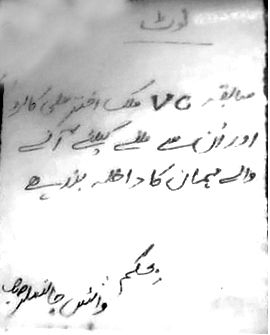 نوٹ
سابقہ VC ملک اختر علی کالرو
اور اُن سے ملنے کیلئے آنے
والے مہمان کا داخلہ بند ہے
بحکم:
وائس چانسلر صاحب